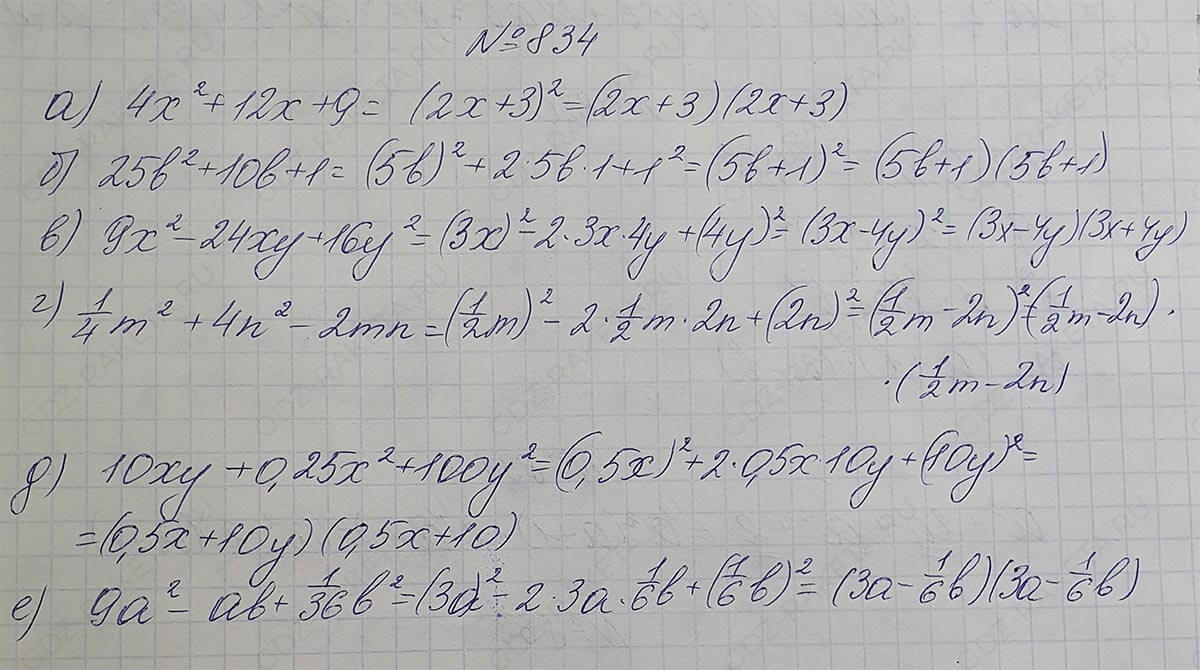 №834
а) 4x²+12x+9= (2x+3)²=(2x+3)(2x+3)
б) 25b²+10b+1= (5b)²+2·5b·1+1²=(5b+1)²= (5b+1)(5b+1)
в) 9x²-24xy+16y²=(3x)²-2·3x·4y+(4y)²=(3x-4y)²=(3x-4y)(3x+4y)
г) 1/4m²+4n²-2mn=(1/2m)²-2·1/2m·2n+(2n)²=(1/2m-2n)²=(1/2m-2n)·
·(1/2m-2n)
д) 10xy+0,25x²+100y²=(0,5x)²+2·0,5x·10y+(10y)²=
=(0,5x+10y)(0,5x+10)
е) 9a²-ab+1/36b²=(3a)²-2·3a·1/6b+(1/6b)²=(3a-1/6b)(3a-1/6b)